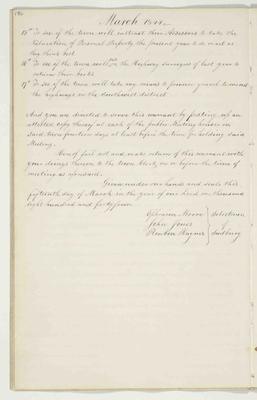 March 1844
15th To see if the town will instruct their Assessors to take the
Valuation of Personal Property the present year to do what as
they think best
16th To see if the town will the Highway Surveyors of last year to
return their books
17th To see if the town will take any means to procure gravel to mend
the highways in the Southwest district.
And you are directed to serve this warrant by posting up an
Attested copy thereof at each of the public Meeting houses in
said town fourteen days at least before the time for holding said
Meeting.
Hereof fail not and make return of this warrant with
your doings thereon to the town clerk on or before the time of
meeting as aforesaid.
Given under our hands and seals this
fifteenth day of March in the year of our lord one thousand
eight hundred and forty four
Ephraim Moore } Selectmen
John Jones } of
Reuben Haynes } Sudbury